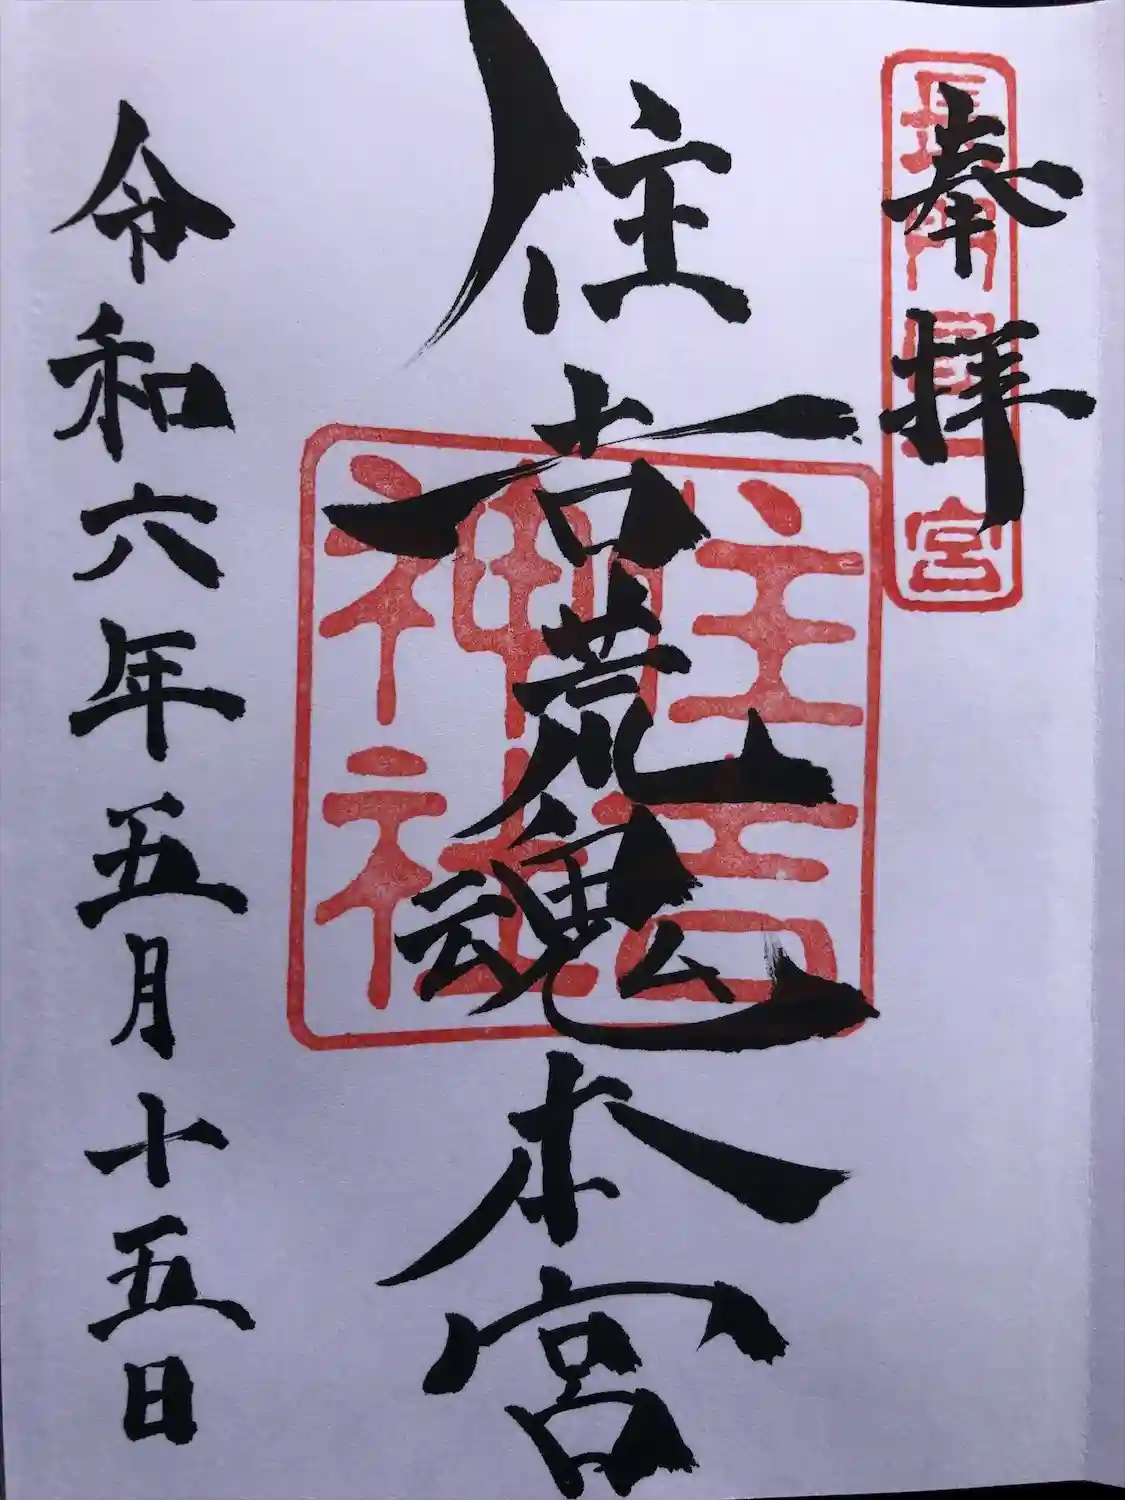 奉拝
長門國一宮
住吉荒魂本宮
住吉
神社
令和六年五月十五日